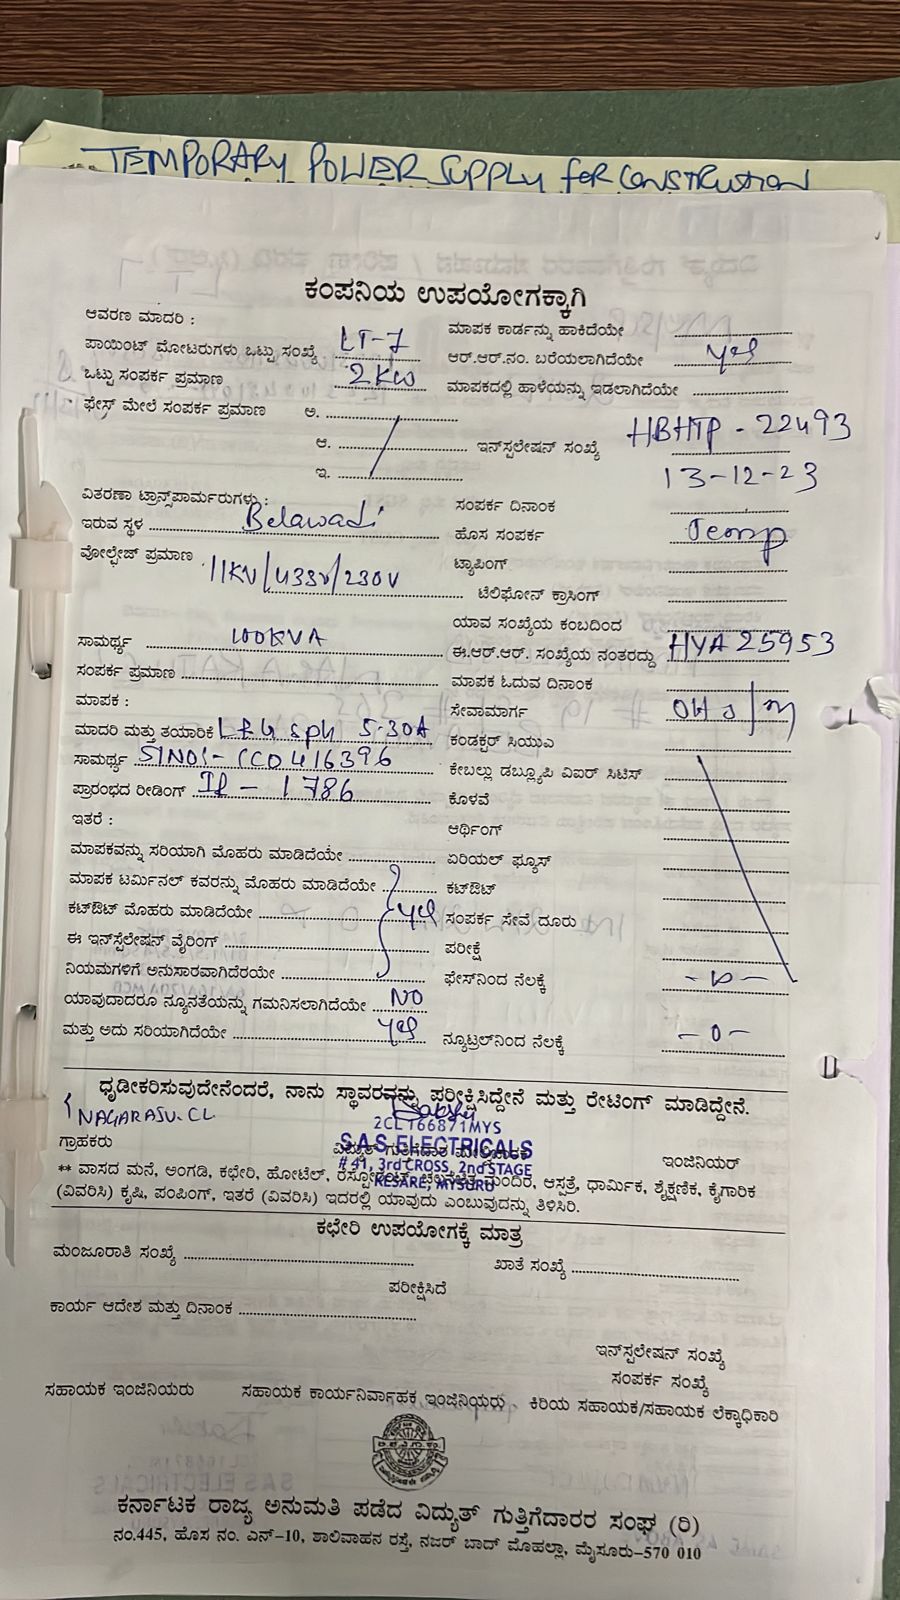 TEMPORARY POWER SUPPLY FOR CONSTRUTION
ಕಂಪನಿಯ ಉಪಯೋಗಕ್ಕಾಗಿ
ಆವರಣ ಮಾದರಿ :
ಪಾಯಿಂಟ್ ಮೋಟರುಗಳು ಒಟ್ಟು ಸಂಖ್ಯೆ LT-7
ಒಟ್ಟು ಸಂಪರ್ಕ ಪ್ರಮಾಣ 2KW
ಫೇಸ್ ಮೇಲೆ ಸಂಪರ್ಕ ಪ್ರಮಾಣ ಅ.
ಆ.
ಇ.
ವಿತರಣಾ ಟ್ರಾನ್ಸ್‌ಪಾರ್ಮರುಗಳು :
ಇರುವ ಸ್ಥಳ Belawadi
ವೋಲ್ಟೇಜ್ ಪ್ರಮಾಣ 11KV/433V/230V
ಸಾಮರ್ಥ್ಯ 100KVA
ಸಂಪರ್ಕ ಪ್ರಮಾಣ
ಮಾಪಕ :
ಮಾದರಿ ಮತ್ತು ತಯಾರಿಕೆ L&G sph 5-30A
ಸಾಮರ್ಥ್ಯ
ಪ್ರಾರಂಭದ ರೀಡಿಂಗ್ IR - 1786
ಇತರೆ :
ಮಾಪಕವನ್ನು ಸರಿಯಾಗಿ ಮೊಹರು ಮಾಡಿದೆಯೇ
ಮಾಪಕ ಟರ್ಮಿನಲ್ ಕವರನ್ನು ಮೊಹರು ಮಾಡಿದೆಯೇ
ಕಟ್‌ಔಟ್ ಮೊಹರು ಮಾಡಿದೆಯೇ yes
ಈ ಇನ್‌ಸ್ಟಲೇಷನ್ ವೈರಿಂಗ್
ನಿಯಮಗಳಿಗೆ ಅನುಸಾರವಾಗಿದೆರಯೇ
ಯಾವುದಾದರೂ ನ್ಯೂನತೆಯನ್ನು ಗಮನಿಸಲಾಗಿದೆಯೇ NO
ಮತ್ತು ಅದು ಸರಿಯಾಗಿದೆಯೇ yes
ಮಾಪಕ ಕಾರ್ಡನ್ನು ಹಾಕಿದೆಯೇ
ಆರ್.ಆರ್.ನಂ. ಬರೆಯಲಾಗಿದೆಯೇ yes
ಮಾಪಕದಲ್ಲಿ ಹಾಳೆಯನ್ನು ಇಡಲಾಗಿದೆಯೇ
ಇನ್‌ಸ್ಟಲೇಷನ್ ಸಂಖ್ಯೆ HBHTP - 22493
13-12-23
ಸಂಪರ್ಕ ದಿನಾಂಕ
ಹೊಸ ಸಂಪರ್ಕ Temp
ಟ್ಯಾಪಿಂಗ್
ಟೆಲಿಫೋನ್ ಕ್ರಾಸಿಂಗ್
ಯಾವ ಸಂಖ್ಯೆಯ ಕಂಬದಿಂದ
ಈ.ಆರ್.ಆರ್. ಸಂಖ್ಯೆಯ ನಂತರದ್ದು HYA 25953
ಮಾಪಕ ಓದುವ ದಿನಾಂಕ
ಸೇವಾಮಾರ್ಗ
ಕಂಡಕ್ಟರ್ ಸಿಯುಎ
ಕೇಬಲ್ಲು ಡಬ್ಲ್ಯೂಪಿ ವಿಐರ್ ಸಿಟಿಸ್
ಕೊಳವೆ
ಆರ್ಥಿಂಗ್
ಏರಿಯಲ್ ಫ್ಯೂಸ್
ಕಟ್‌ಔಟ್
ಸಂಪರ್ಕ ಸೇವೆ ದೂರು
ಪರೀಕ್ಷೆ
ಫೇಸ್‌ನಿಂದ ನೆಲಕ್ಕೆ
ನ್ಯೂಟ್ರಲ್‌ನಿಂದ ನೆಲಕ್ಕೆ -0-
ಧೃಡೀಕರಿಸುವುದೇನೆಂದರೆ, ನಾನು ಸ್ಥಾವರವನ್ನು ಪರೀಕ್ಷಿಸಿದ್ದೇನೆ ಮತ್ತು ರೇಟಿಂಗ್ ಮಾಡಿದ್ದೇನೆ.
NAGARAJU.CL
2CL166871MYS
S.A.S ELECTRICALS
# 41, 3rd CROSS, 2nd STAGE
KESARE, MYSURU
ಗ್ರಾಹಕರು ವಿದ್ಯುತ್ ಗುತ್ತಿಗೆದಾರ ಇಂಜಿನಿಯರ್
** ವಾಸದ ಮನೆ, ಅಂಗಡಿ, ಕಛೇರಿ, ಹೋಟೆಲ್, ಆಸ್ಪತ್ರೆ, ಧಾರ್ಮಿಕ, ಶೈಕ್ಷಣಿಕ, ಕೈಗಾರಿಕ
(ವಿವರಿಸಿ) ಕೃಷಿ, ಪಂಪಿಂಗ್, ಇತರೆ (ವಿವರಿಸಿ) ಇದರಲ್ಲಿ ಯಾವುದು ಎಂಬುವುದನ್ನು ತಿಳಿಸಿರಿ.
ಕಛೇರಿ ಉಪಯೋಗಕ್ಕೆ ಮಾತ್ರ
ಮಂಜೂರಾತಿ ಸಂಖ್ಯೆ ಖಾತೆ ಸಂಖ್ಯೆ
ಪರೀಕ್ಷಿಸಿದೆ
ಕಾರ್ಯ ಆದೇಶ ಮತ್ತು ದಿನಾಂಕ
ಇನ್‌ಸ್ಟಲೇಷನ್ ಸಂಖ್ಯೆ
ಸಂಪರ್ಕ ಸಂಖ್ಯೆ
ಸಹಾಯಕ ಇಂಜಿನಿಯರು ಸಹಾಯಕ ಕಾರ್ಯನಿರ್ವಾಹಕ ಇಂಜಿನಿಯರು ಕಿರಿಯ ಸಹಾಯಕ/ಸಹಾಯಕ ಲೆಕ್ಕಾಧಿಕಾರಿ
ಕರ್ನಾಟಕ ರಾಜ್ಯ ಅನುಮತಿ ಪಡೆದ ವಿದ್ಯುತ್ ಗುತ್ತಿಗೆದಾರರ ಸಂಘ (ರಿ)
ನಂ.445, ಹೊಸ ನಂ. ಎನ್-10, ಶಾಲಿವಾಹನ ರಸ್ತೆ, ನಜರ್ ಬಾದ್ ಮೊಹಲ್ಲಾ, ಮೈಸೂರು-570 010